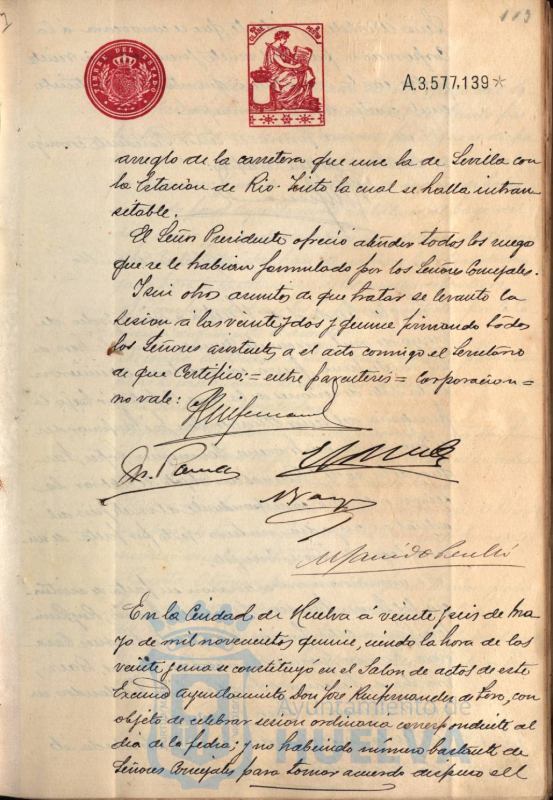 113
TIMBRE DEL ESTADO
A.3.577,139*
arreglo de la carretera que une la de Sevilla con
la Estacion de Rio-Tinto la cual se halla intran
sitable.
El Señor Presidente ofreció atender todos los ruegos
que se le habian formulado por los Señores Concejales.
I sin otros asuntos de que tratar se levantó la
sesion á las veinte y dos y quince firmando todos
los Señores asistentes a el acto conmigo el Secretario
de que Certifico:= entre parentesis= Corporacion=
no vale:
En la Ciudad de Huelva á veinte y seis de Ma
yo de mil novecientos quince, siendo la hora de las
veinte y una se constituyó en el Salon de actos de este
Excmo Ayuntamiento Don José Ruifernandez de Toro, con
objeto de celebrar sesion ordinaria correspondiente al
dia de la fecha; y no habiendo número bastante de
Señores Concejales para tomar acuerdo dispuso el
Ayuntamiento de
HUELVA